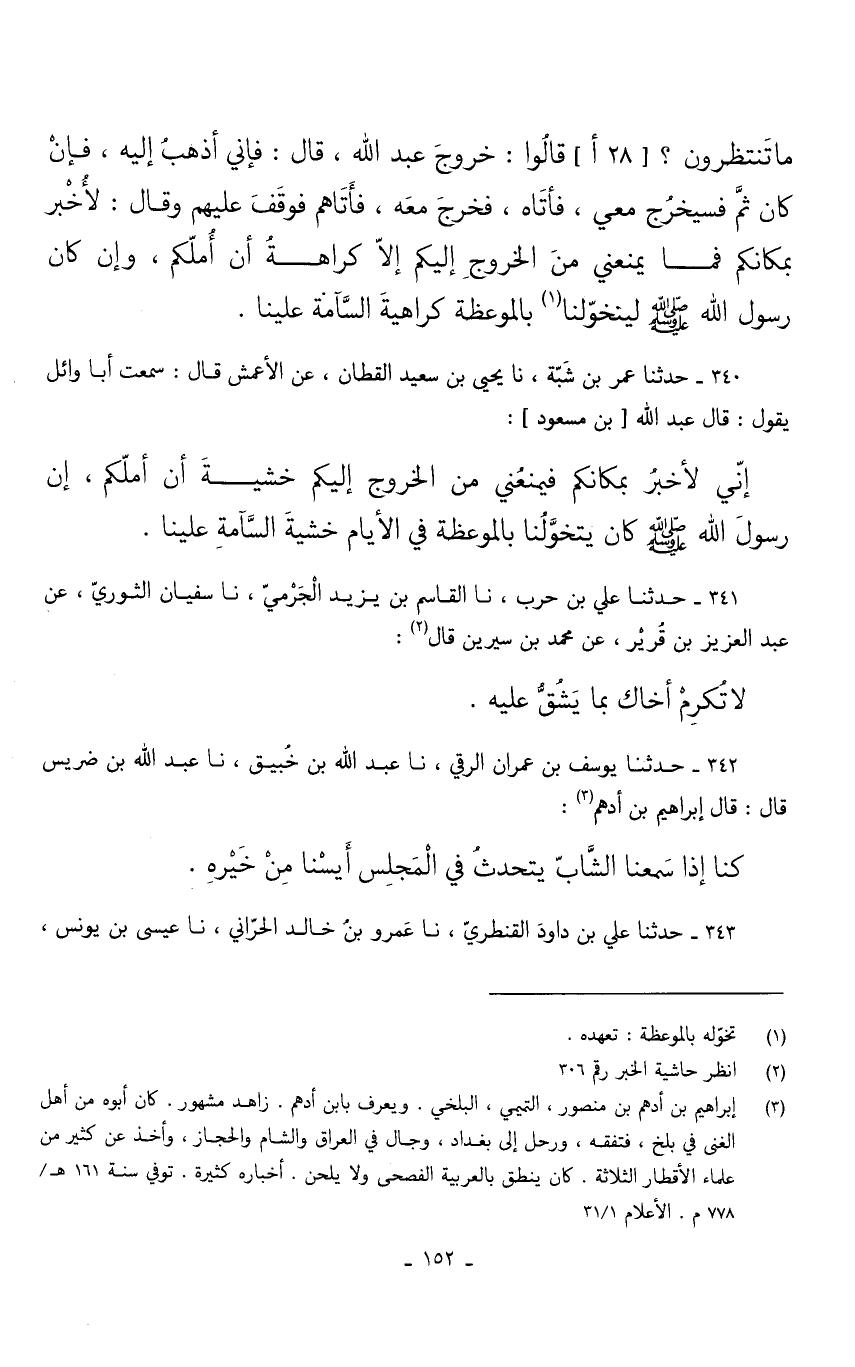 ماتَنتظرون ؟ [ ٢٨ أ ] قالُوا : خروجَ عبد الله ، قال : فإني أذهبُ إليه ، فـإنْ
كان ثمَّ فسيخرُج معي ، فأتَاه ، فخرجَ معَه ، فأَتَاهم فوقَفَ عليهم وقـال : لأُخْبر
بمكانكم فمـــا يمنعني منَ الخروجِ إليكم إلاّ كراهـــةُ أن أُملّكم ، وإن كان
رسول الله ﷺ لينخوّلنا(١) بالموعظة كراهيةَ السَّآمة علينا .
٣٤٠ ـ حدثنا عمر بن شَبّة ، نا يحيى بن سعيد القطان ، عن الأعمش قـال : سمعت أبـا وائل
يقول : قال عبد الله [ بن مسعود ] :
إنّي لأخبرُ بمكانكم فيمنعُني من الخروج إليكم خشيـــةَ أن أملّكم ، إن
رسولَ الله ﷺ كان يتخوَّلُنا بالموعظة في الأيام خشيةَ السَّآمةِ علينا .
٣٤١ ـ حـدثنـا علي بن حرب ، نـا القـاسم بن يـزيـد الْجَرْميّ ، نـا سفيـان الثـوريّ ، عن
عبد العزيز بن قُريْر ، عن محمد بن سيرين قال(٢) :
لاتُكرِمْ أخاك بما يَشُقُّ عليه .
٣٤٢ ـ حـدثنـا يوسف بن عمران الرقي ، نـا عبـد الله بن خُبيـق ، نـا عبـد الله بن ضريس
قال : قال إبراهيم بن أدهم(٣) :
كنا إذا سَمعنا الشَّابّ يتحدثُ في الْمَجلِس أَيسْنا مِنْ خَيْرهِ .
٣٤٣ ـ حدثنا علي بن داودَ القنطريّ ، نـا عَمرو بنُ خـالـد الحرّاني ، نـا عيسى بن يونس ،
(١) تخوّله بالموعظة : تعهده .
(٢) انظر حاشية الخبر رقم ٣٠٦
(٣) إبراهيم بن أدهم بن منصور ، التميمي ، البلخي . ويعرف بابن أدهم . زاهـد مشهور . كان أبوه من أهل
الغنى في بلخ ، فتفقـه ، ورحل إلى بغـداد ، وجـال في العراق والشـام والحجـاز ، وأخـذ عن كثير من
علماء الأقطار الثلاثة . كان ينطق بالعربية الفصحى ولا يلحن . أخباره كثيرة . توفي سنـة ١٦١ هـ /
٧٧٨ م . الأعلام ٣١/١
ـ ١٥٢ ـ